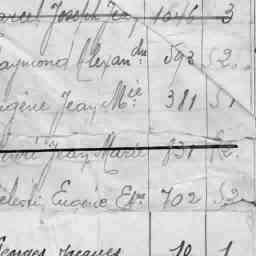 arcel Joseph 1046 3
aymond Alexandre 593 52
ugène Jean Mie 381 51
enri Jean Marie 831 52
élestin Eugène 702 52
eorges Jacques 10 1